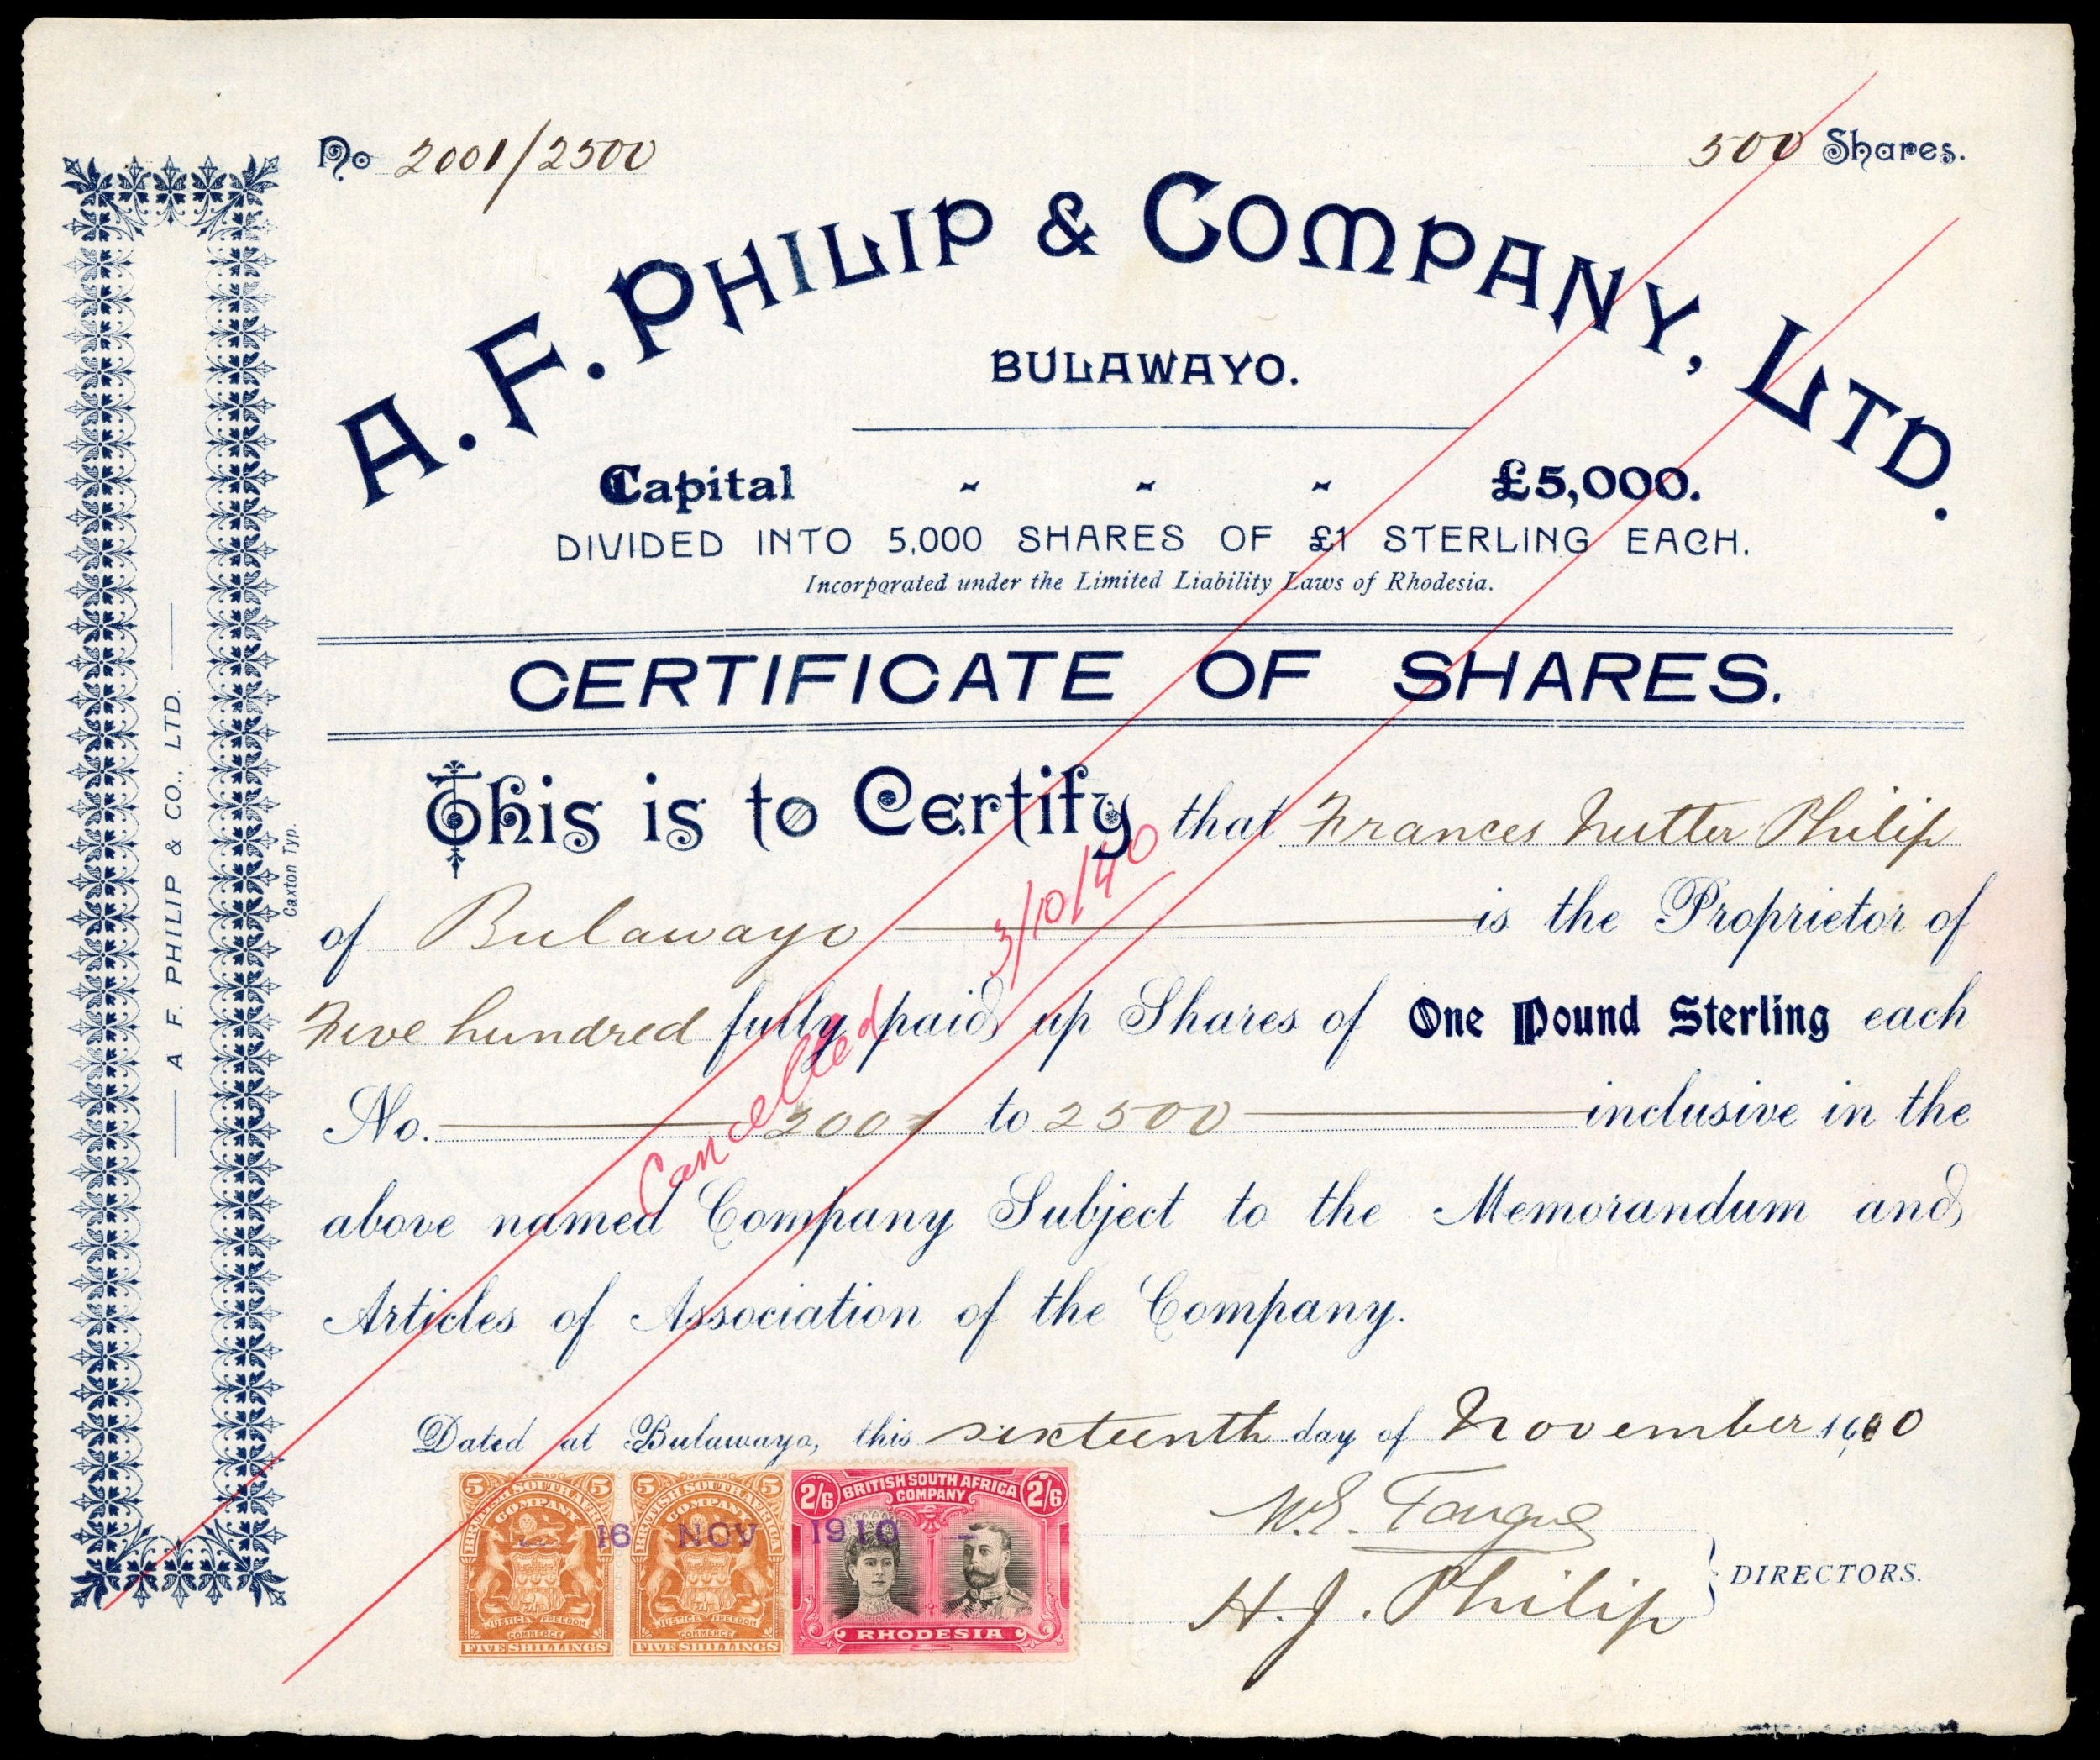 No 2001/2500
500 Shares.
A. F. PHILIP & COMPANY, LTD.
BULAWAYO.
Capital - - - £5,000.
DIVIDED INTO 5,000 SHARES OF £1 STERLING EACH.
Incorporated under the Limited Liability Laws of Rhodesia.
CERTIFICATE OF SHARES.
This is to Certify that Frances Nutter Philip
of Bulawayo is the Proprietor of
Five hundred fully paid up Shares of One Pound Sterling each
No. 2001 to 2500 inclusive in the
above named Company Subject to the Memorandum and
Articles of Association of the Company.
Cancelled 3/10/40
Dated at Bulawayo, this sixteenth day of November 1910
W. E.
H. J. Philip
DIRECTORS.
A. F. PHILIP & CO., LTD.
Caxton Typ.
5 5
BRITISH SOUTH AFRICA
COMPANY
JUSTICE FREEDOM
COMMERCE
FIVE SHILLINGS
5 5
BRITISH SOUTH AFRICA
COMPANY
JUSTICE FREEDOM
COMMERCE
FIVE SHILLINGS
2/6 BRITISH SOUTH AFRICA 2/6
COMPANY
RHODESIA
16 NOV 1910